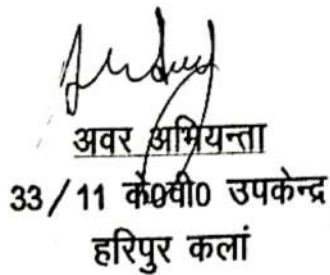 अवर अभियन्ता
33/11 के0वी0 उपकेन्द्र
हरिपुर कलां